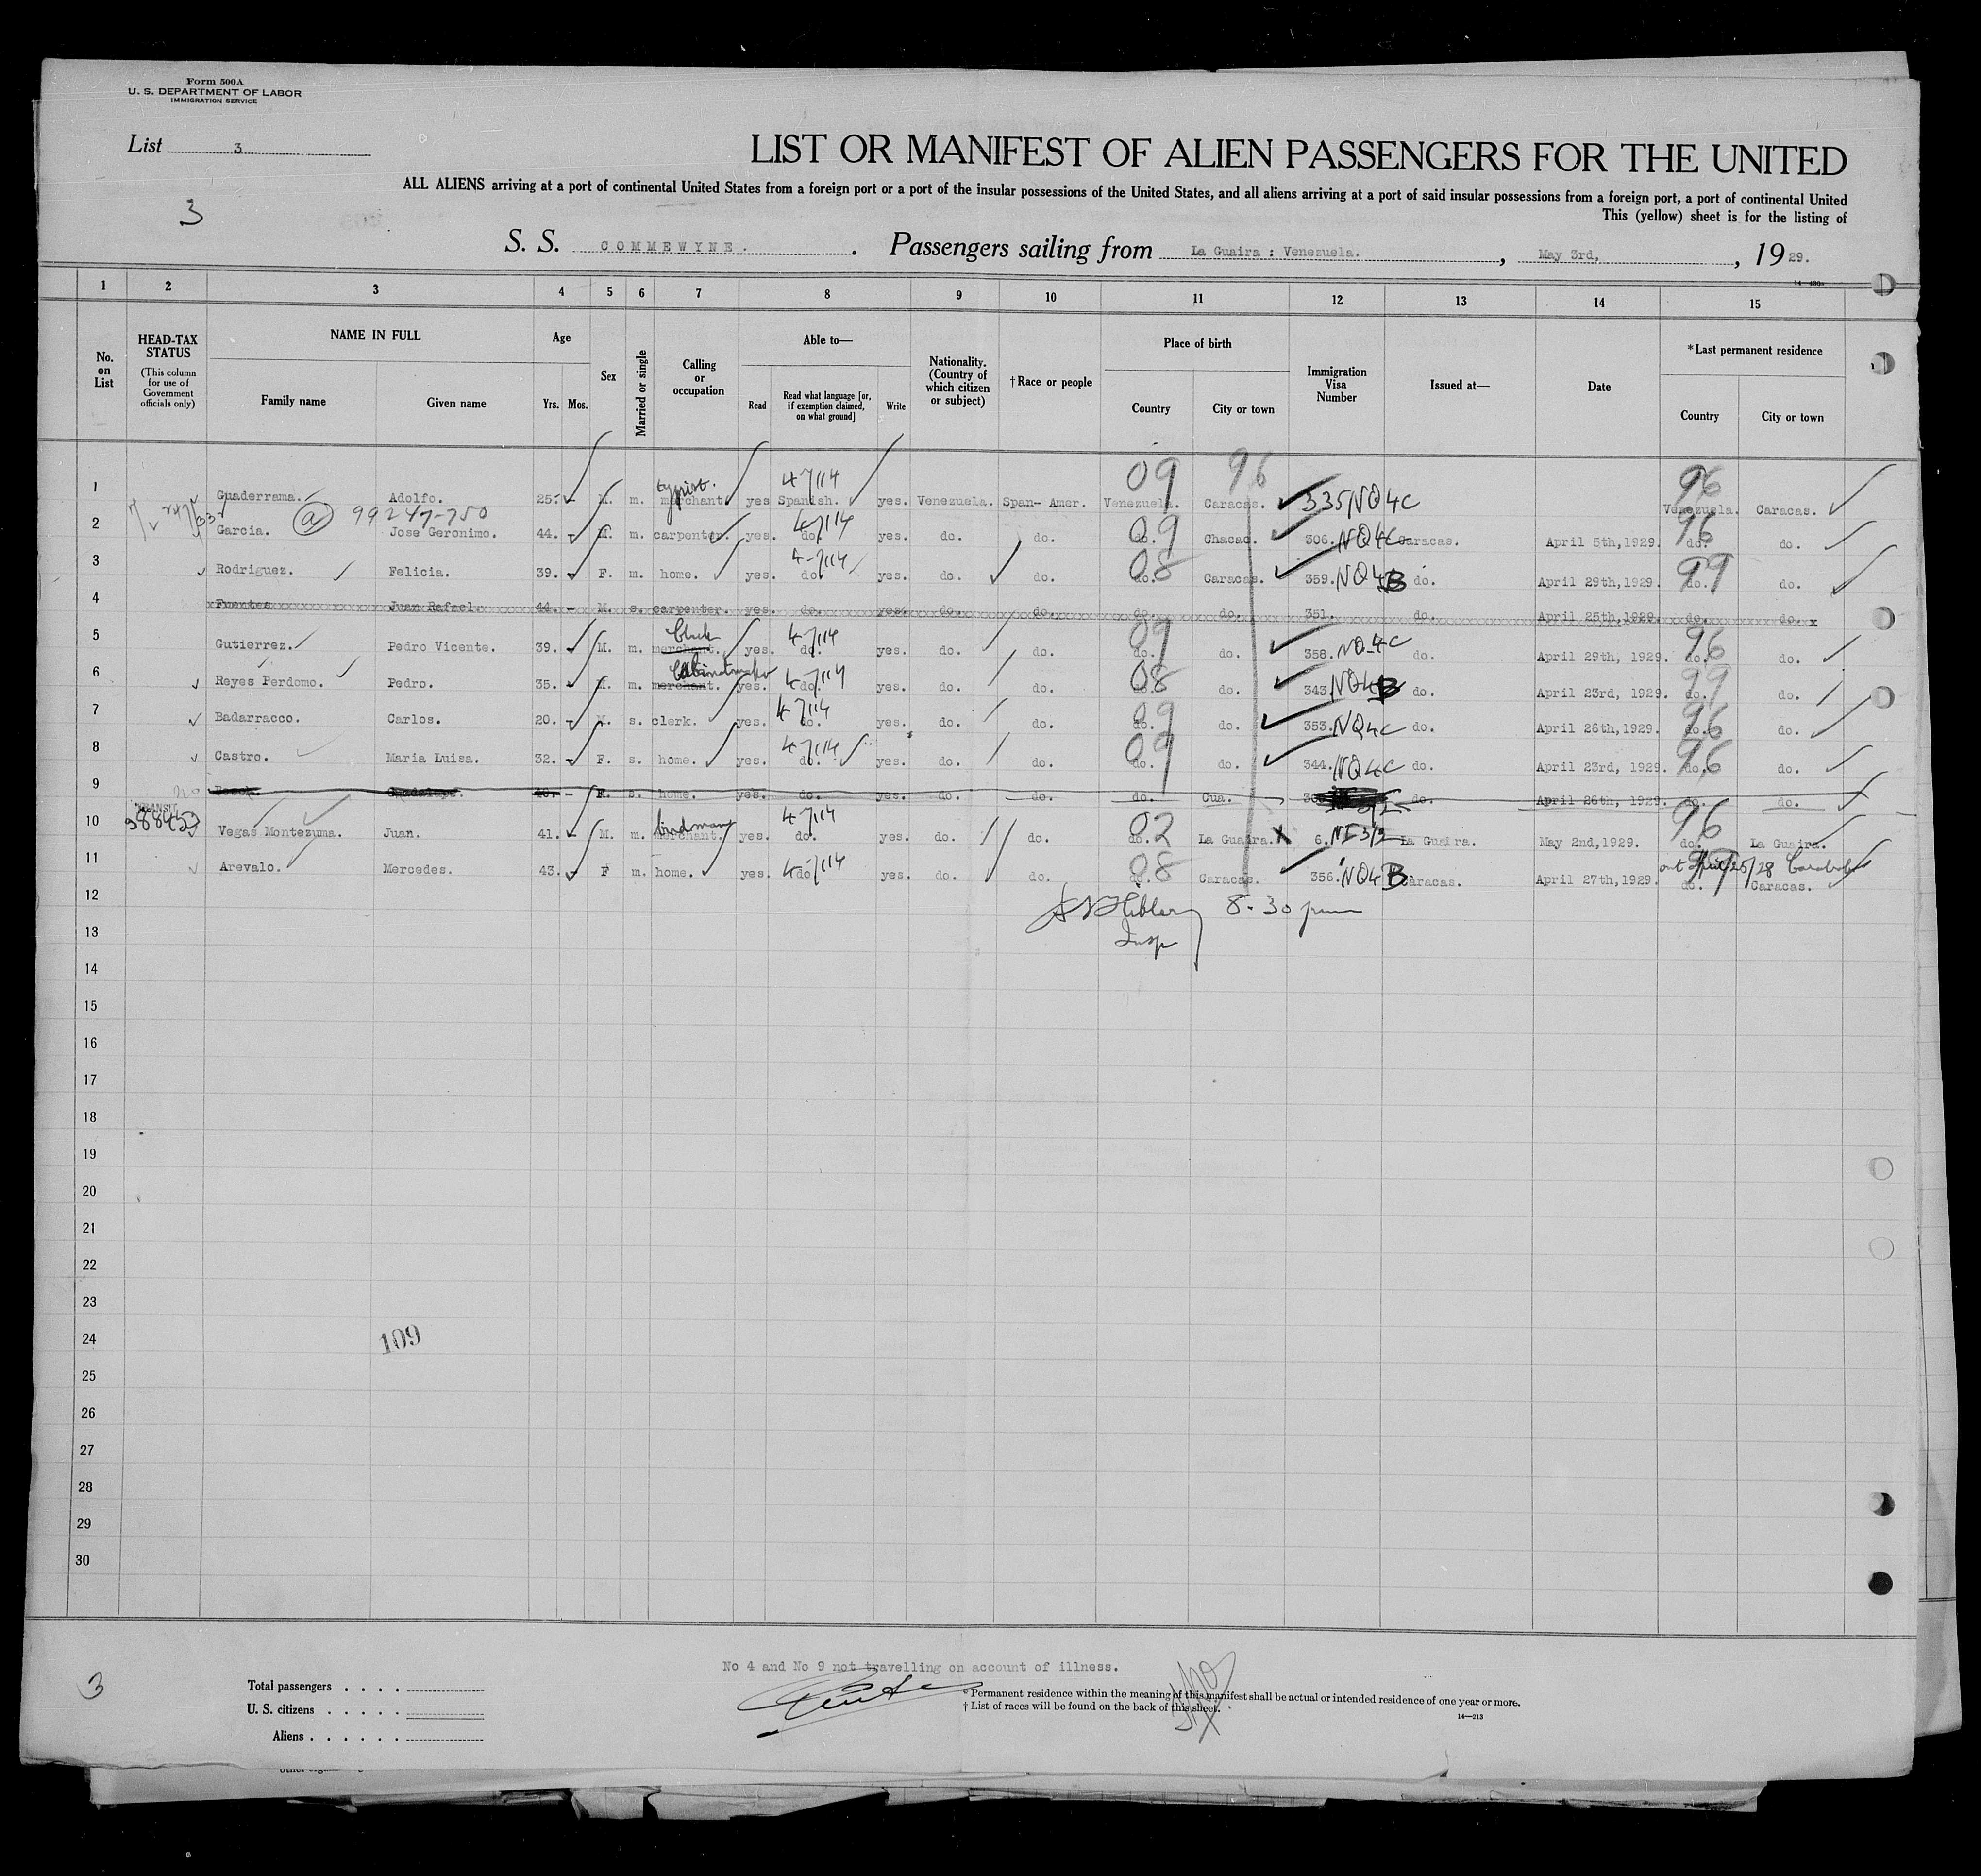 Form 500A
U. S. DEPARTMENT OF LABOR
IMMIGRATION SERVICE
List 3
LIST OR MANIFEST OF ALIEN PASSENGERS FOR THE UNITED
ALL ALIENS arriving at a port of continental United States from a foreign port or a port of the insular possessions of the United States, and all aliens arriving at a port of said insular possessions from a foreign port, a port of continental United
This (yellow) sheet is for the listing of
3
S. S. COMMEWYNE. Passengers sailing from La Guaira : Venezuela. , May 3rd, , 1929.
14—430a
1 2 3 4 5 6 7 8 9 10 11 12 13 14 15
No. on List
HEAD-TAX STATUS (This column for use of Government officials only)
NAME IN FULL
Family name Given name
Age
Yrs. Mos.
Sex
Married or single
Calling or occupation
Able to—
Read
Read what language [or, if exemption claimed, on what ground]
Write
Nationality. (Country of which citizen or subject)
†Race or people
Place of birth
Country City or town
Immigration Visa Number
Issued at—
Date
*Last permanent residence
Country City or town
1 Guaderrama. Adolfo. 25. - M. m. merchant typist. yes Spanish. 4-7/14 yes. Venezuela. Span- Amer. Venezuela. 09 Caracas. 96 335 NQ4C Venezuela. 96 Caracas.
(a) 99247-750
2 Garcia. Jose Geronimo. 44. - M. m. carpenter. yes. do. 4-7/14 yes. do. do. do. 09 Chacao. 306. NQ4C Caracas. April 5th,1929. do. 96 do.
3 Rodriguez. Felicia. 39. - F. m. home. yes. do. 4-7/14 yes. do. do. do. 08 Caracas. 359. NQ4B do. April 29th,1929. do. 99 do.
4 Fuentes Juan Rafael. 44. - M. s. carpenter. yes. do. yes. do. do. do. do. 351. do. April 25th,1929. do. do.
5 Gutierrez. Pedro Vicente. 39. - M. m. merchant. Clerk yes. do. 4-7/14 yes. do. do. do. 09 do. 358. NQ-4C do. April 29th, 1929. do. 96 do.
6 Reyes Perdomo. Pedro. 35. - M. m. merchant. Cabinetmaker yes. do. 4-7/14 yes. do. do. do. 08 do. 343. NQ4B do. April 23rd, 1929. do. 99 do.
7 Badarracco. Carlos. 20. - M. s. clerk. yes. do. 4-7/14 yes. do. do. do. 09 do. 353. NQ4C do. April 26th,1929. do. 96 do.
8 Castro. Maria Luisa. 32. - F. s. home. yes. do. 4-7/14 yes. do. do. do. 09 do. 344. NQ4C do. April 23rd, 1929. do. 96 do.
9 - F. s. home. yes. do. yes. do. do. do. Cua. do. April 26th, 1929. do. do.
TRANSIT
10 Vegas Montezuma. Juan. 41. - M. m. merchant. yes. do. 4-7/14 yes. do. do. do. 02 La Guaira. 6. La Guaira. May 2nd,1929. do. 96 La Guaira.
11 Arevalo. Mercedes. 43. - F m. home. yes. do. 4-7/14 yes. do. do. do. 08 Caracas. 356. NQ4B Caracas. April 27th,1929. do. Caracas.
12 8-30 pm
13 Insp
14
15
16
17
18
19
20
21
22
23
24 109
25
26
27
28
29
30
No 4 and No 9 not travelling on account of illness.
3
Total passengers . . . .
U. S. citizens . . . . .
Aliens . . . . . .
* Permanent residence within the meaning of this manifest shall be actual or intended residence of one year or more.
† List of races will be found on the back of this sheet.
14—213